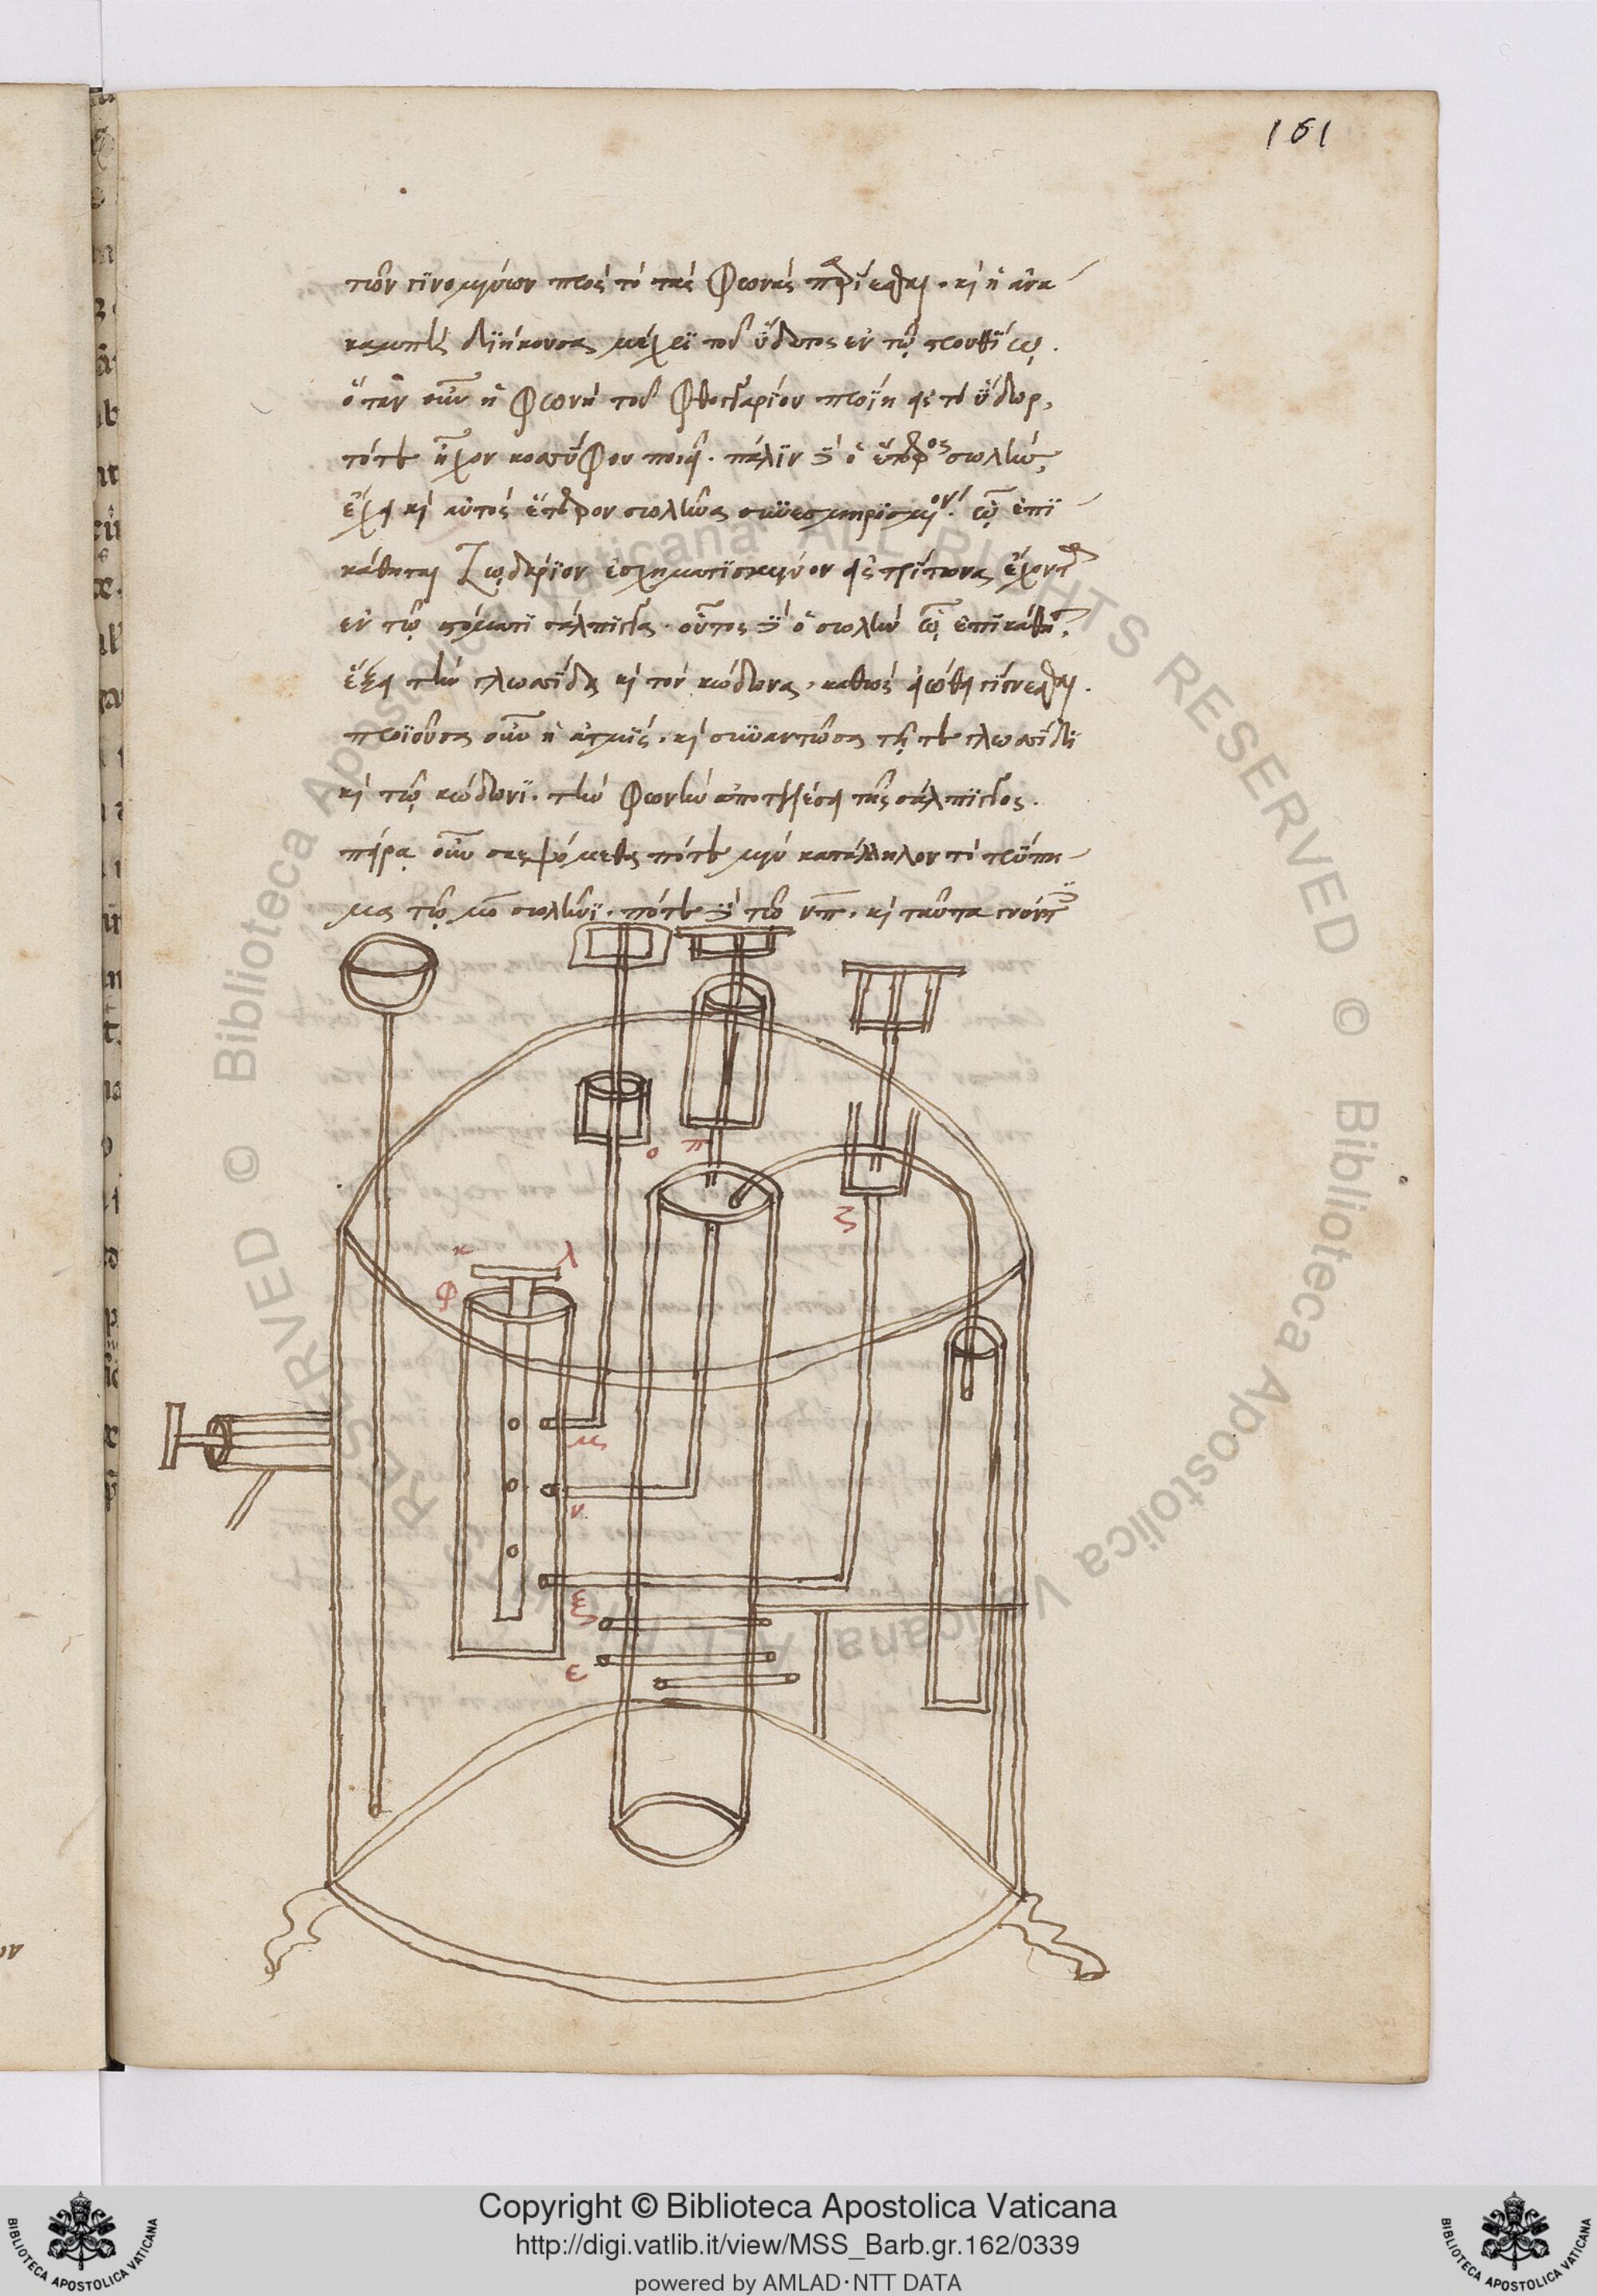 161
τῶν γινομένων πρὸς τὸ τὰς φωνὰς προΐεσθαι. κὶ ἡ ἀνα
διήκουσα μέχρι τοῦ ὕδατος ἐν τῷ
ὅταν οὖν ἡ φωνὴ τοῦ φθογγαρίου εἰς τὸ ὕδωρ,
τότε ἦχον κοσσύφου ποιεῖ. πάλιν δὲ ὁ ἕτερος σωλὴν,
ἔχει κὶ αὐτὸς ἕτερον σωλῆνα συνεσμηρισμένον. ᾧ ἐπι
κάθηται ζῳδάριον ἐσχηματισμένον εἰς τρίτωνα ἔχοντα
ἐν τῷ στόματι σάλπιγγα. οὗτος δὲ ὁ σωλὴν ᾧ
ἕξει τὴν γλωσσίδα κὶ τὸν κώδωνα, καθὼς εἴωθε γίνεσθαι.
προϊοῦσα οὖν ἡ ἀτμὶς, κὶ συναντῶσα τῇ τε γλωσσίδι
κὶ τῷ κώδωνι. τὴν φωνὴν ἀποτελέσει τῆς σάλπιγγος.
οὖν πότε μὲν κατάλληλον τὸ τρύπη
μα τῷ μο σωλῆνι. πότε δὲ τῷ νπ. κὶ ταῦτα
ο π
ζ
κ λ
φ
μ
ν
ξ
ε
Copyright © Biblioteca Apostolica Vaticana
http://digi.vatlib.it/view/MSS_Barb.gr.162/0339
powered by AMLAD·NTT DATA
BIBLIOTECA APOSTOLICA VATICANA
BIBLIOTECA APOSTOLICA VATICANA
© Biblioteca Apostolica Vaticana ALL RIGHTS RESERVED © Biblioteca Apostolica Vaticana ALL RIGHTS RESERVED